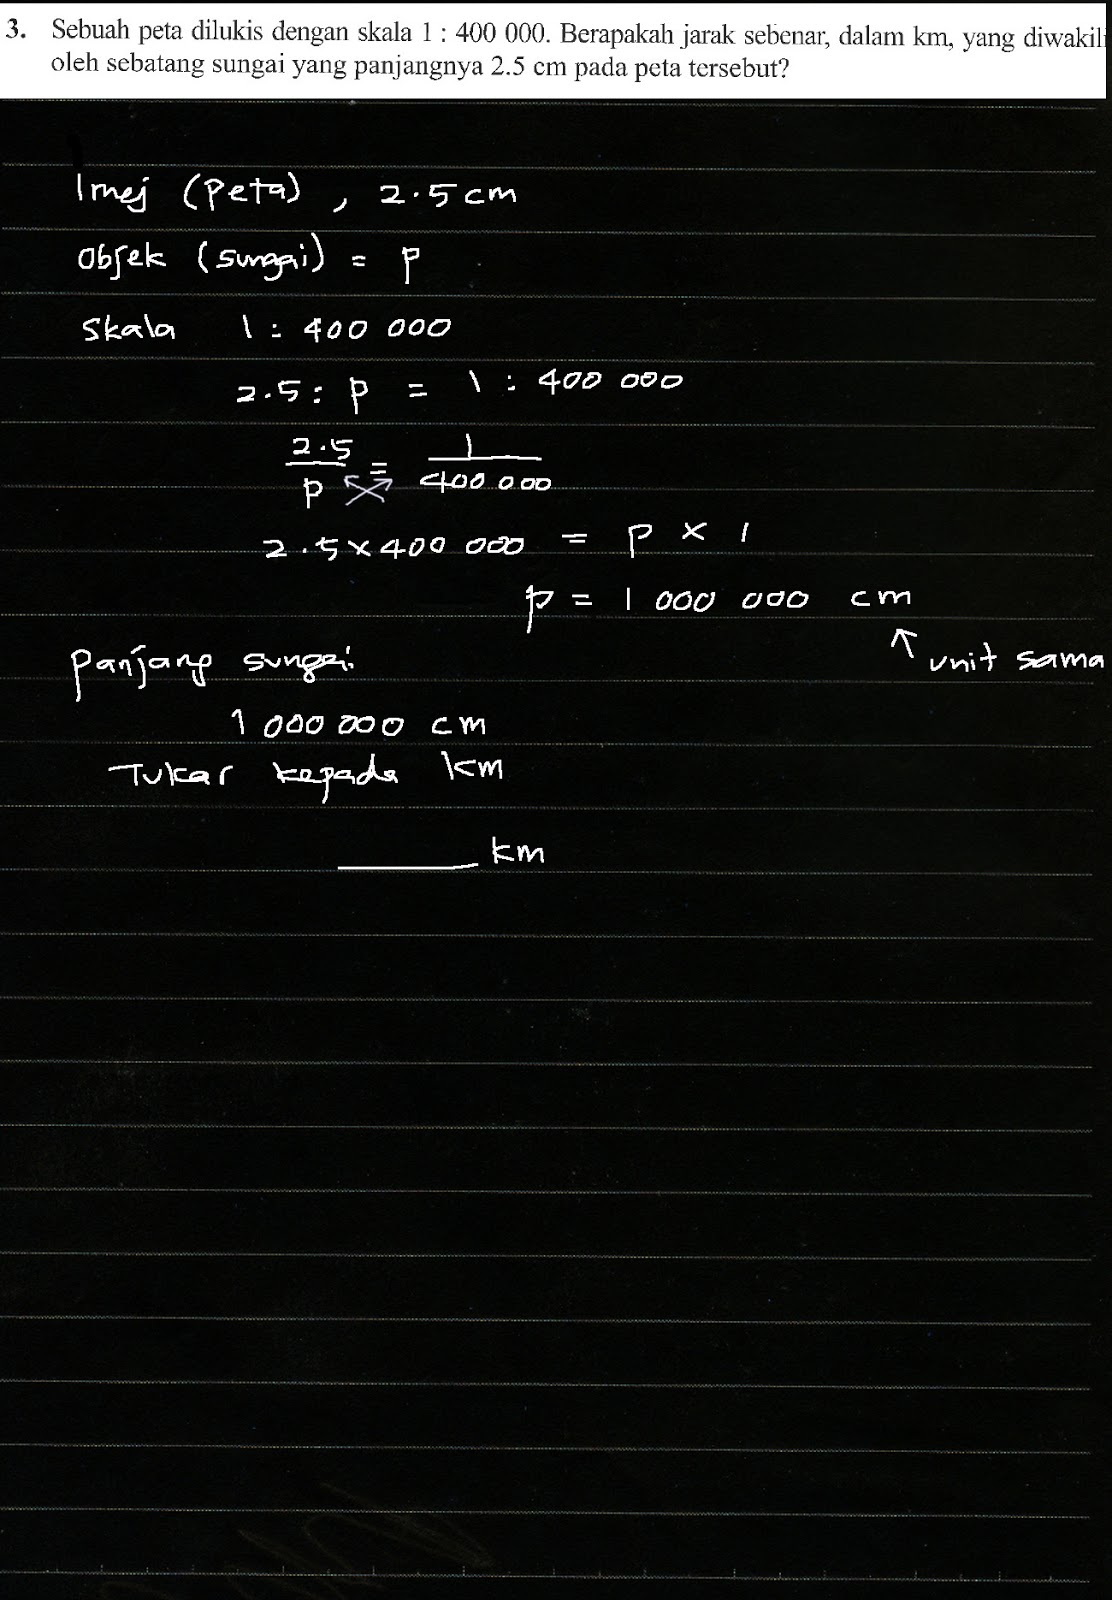 3. Sebuah peta dilukis dengan skala 1 : 400 000. Berapakah jarak sebenar, dalam km, yang diwakili
oleh sebatang sungai yang panjangnya 2.5 cm pada peta tersebut?
Imej (Peta) , 2.5 cm
Objek (sungai) = P
Skala 1 : 400 000
2.5 : P = 1 : 400 000
2.5/P = 1/400 000
2.5 x 400 000 = P x 1
P = 1 000 000 cm
↑ unit sama
Panjang sungai
1 000 000 cm
Tukar kepada km
______ km